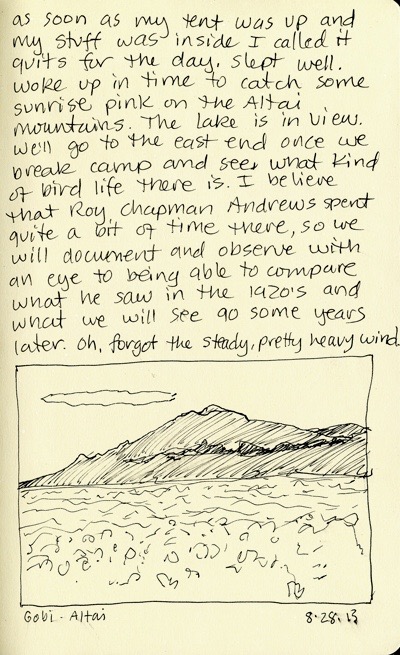 as soon as my tent was up and
my stuff was inside I called it
quits for the day. Slept well.
woke up in time to catch some
sunrise pink on the Altai
mountains. The lake is in view.
we'll go to the east end once we
break camp and see what kind
of bird life there is. I believe
that Roy Chapman Andrews spent
quite a bit of time there, so we
will document and observe with
an eye to being able to compare
what he saw in the 1920's and
what we will see 90 some years
later. Oh, forgot the steady, pretty heavy wind.
Gobi - Altai
8.28.13